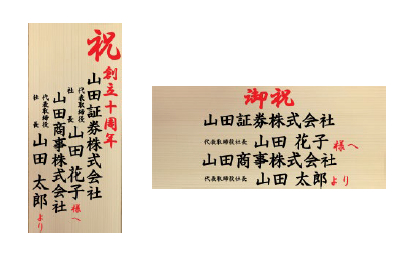 祝
創立十周年
山田証券株式会社
代表取締役
社長
山田 花子
様へ
山田商事株式会社
代表取締役
社長
山田 太郎
より
御祝
山田証券株式会社
代表取締役社長 山田 花子 様へ
山田商事株式会社
代表取締役社長 山田 太郎 より